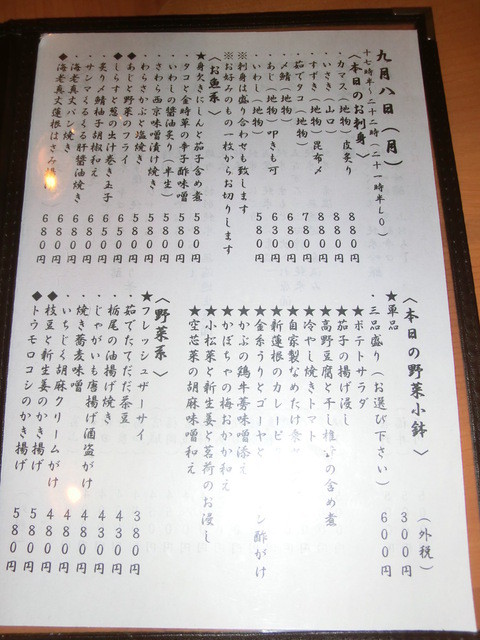 九月八日(月)
十七時半~二十二時(二十一時半LO)
〈本日のお刺身〉
・カマス(地物)皮炙り 880円
・いさき(山口) 880円
・すずき(地物)昆布〆 880円
・茹でタコ(地物) 780円
・〆鯖(地物) 680円
・あじ(地物)叩きも可 630円
・いわし(地物) 580円
※刺身は盛り合わせも致します
※お好みのもの一枚からお切りします
〈お魚系〉
★身欠きにしんと茄子含め煮 580円
・タコと金時草の辛子酢味噌 580円
・いわしの醤油炙り(半生) 580円
・さわら西京味噌漬け焼き 580円
・わらさかぶと塩焼き 580円
◆あじと野菜のフライ 650円
◆しらすと葱の出汁巻き玉子 650円
・炙り〆鯖柚子胡椒和え 680円
・サンマくるくる肝醤油焼き 680円
・海老真丈パン焼き 680円
◆海老真丈蓮根はさみ 680円
〈本日の野菜小鉢〉 (外税)
★単品 300円
・三品盛り(お選び下さい) 600円
★ポテトサラダ
★茄子の揚げ浸し
★高野豆腐と干し椎茸の含め煮
★冷やし焼きトマト
★自家製なめたけ
★新蓮根のカレーピ
★金糸うりとゴーヤと ン酢がけ
★かぶの鶏牛蒡味噌添え
★かぼちゃの梅おかか和え
★小松菜と新生姜と茗荷のお浸し
★空芯菜の胡麻味噌和え
〈野菜系〉
★フレッシュザーサイ 380円
・茹でたてだだ茶豆 430円
・栃尾の油揚げ焼き 430円
・じゃがいも唐揚げ酒盗がけ 480円
・焼き蕎麦味噌 480円
・いちじく胡麻クリームがけ 480円
◆枝豆と新生姜のかき揚げ 580円
◆トウモロコシのかき揚げ 580円